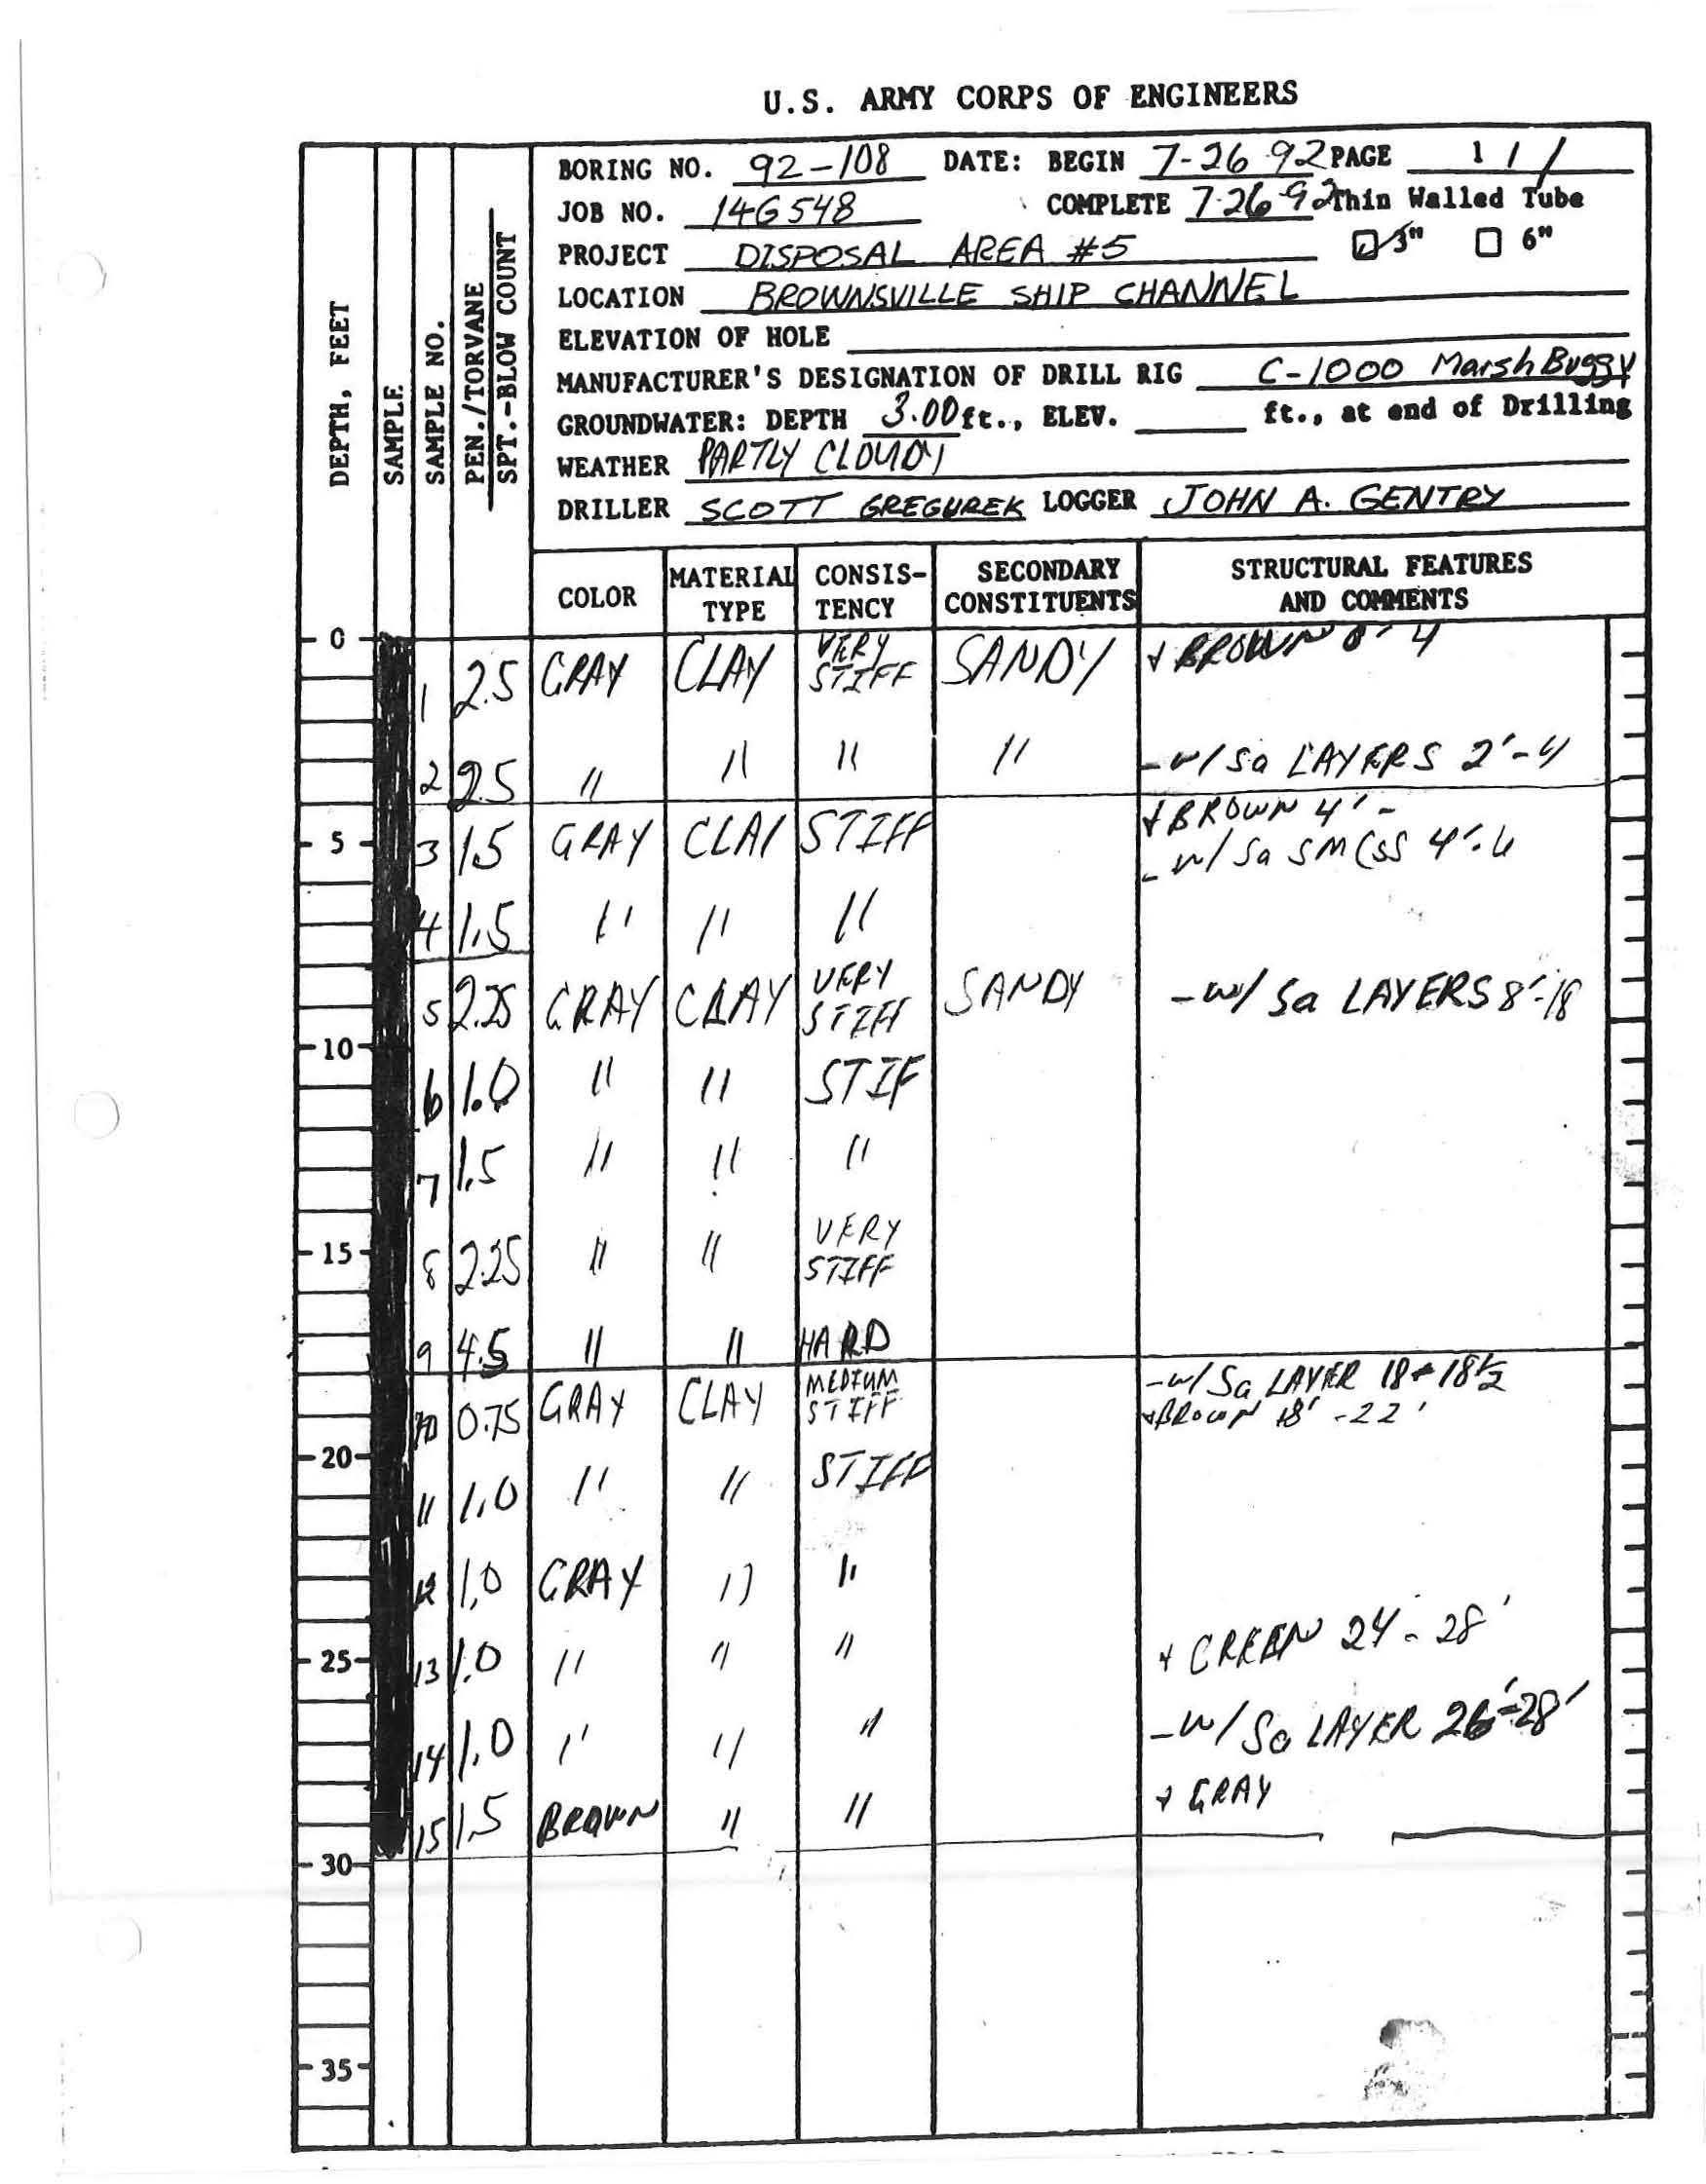 U.S. ARMY CORPS OF ENGINEERS
BORING NO. 92-108 DATE: BEGIN 7-26-92 PAGE 1 / 1
JOB NO. 14G548 COMPLETE 7-26-92 Thin Walled Tube
PROJECT DISPOSAL AREA #5 3" 6"
LOCATION BROWNSVILLE SHIP CHANNEL
ELEVATION OF HOLE
MANUFACTURER'S DESIGNATION OF DRILL RIG C-1000 Marsh Buggy
GROUNDWATER: DEPTH 3.00 ft., ELEV. ft., at end of Drilling
WEATHER PARTLY CLOUDY
DRILLER SCOTT GREGUREK LOGGER JOHN A. GENTRY
DEPTH, FEET
SAMPLE
SAMPLE NO.
PEN./TORVANE
SPT.-BLOW COUNT
COLOR MATERIAL TYPE CONSIS-TENCY SECONDARY CONSTITUENTS STRUCTURAL FEATURES AND COMMENTS
0
1 2.5 GRAY CLAY VERY STIFF SANDY + BROWN 0'-4
2 2.5 " " " " -w/ Sa LAYERS 2'-4
+ BROWN 4'-
5 3 1.5 GRAY CLAY STIFF - w/ Sa SM 4'-6
4 1.5 " " "
5 2.25 GRAY CLAY VERY STIFF SANDY -w/ Sa LAYERS 8'-18
10
6 1.0 " " STIF
7 1.5 " " "
15 8 2.25 " " VERY STIFF
9 4.5 " " HARD
10 0.75 GRAY CLAY MEDIUM STIFF -w/ Sa LAYER 18-18½
+BROWN 18'-22'
20
11 1.0 " " STIFF
12 1.0 GRAY " "
25 13 1.0 " " " + GREEN 24'-28'
14 1.0 " " " -w/ Sa LAYER 26'-28'
15 1.5 BROWN " " + GRAY
30
35